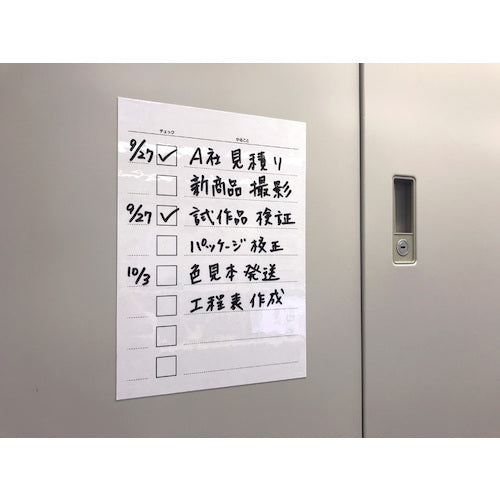 チェック やること
9/27 ✓ A社見積り
新商品撮影
9/27 ✓ 試作品検証
パッケージ校正
10/3 色見本発送
工程表作成